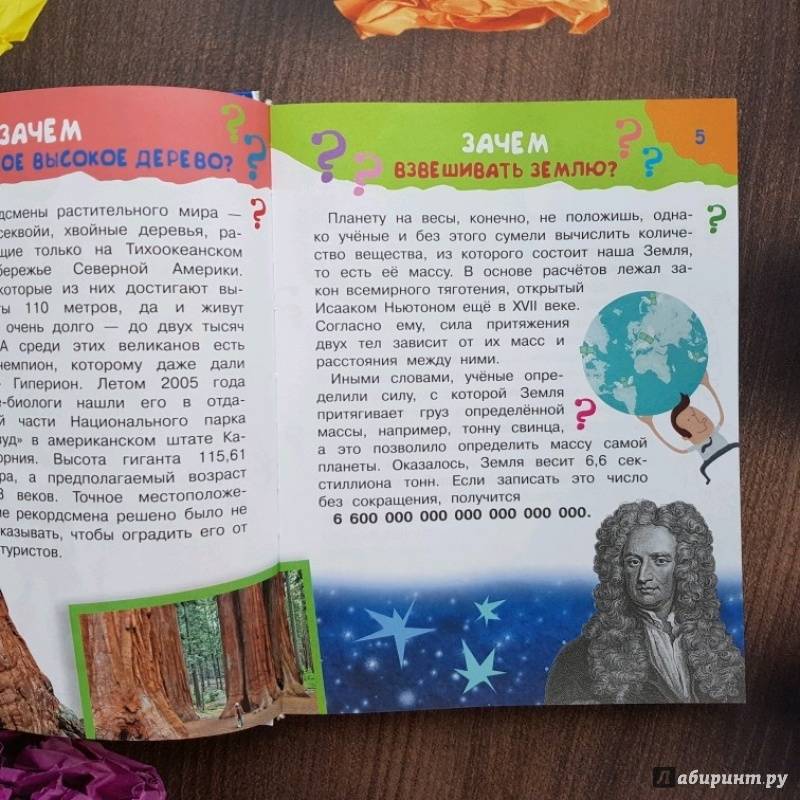 ЗАЧЕМ
ОЕ ВЫСОКОЕ ДЕРЕВО?
дсмены растительного мира —
секвойи, хвойные деревья, ра-
щие только на Тихоокеанском
бережье Северной Америки.
которые из них достигают вы-
ты 110 метров, да и живут
очень долго — до двух тысяч
А среди этих великанов есть
чемпион, которому даже дали
— Гиперион. Летом 2005 года
е-биологи нашли его в отда-
й части Национального парка
вуд» в американском штате Ка-
орния. Высота гиганта 115,61
ра, а предполагаемый возраст
8 веков. Точное местоположе-
ие рекордсмена решено было не
казывать, чтобы оградить его от
туристов.
5
ЗАЧЕМ
ВЗВЕШИВАТЬ ЗЕМЛЮ?
Планету на весы, конечно, не положишь, одна-
ко учёные и без этого сумели вычислить количе-
ство вещества, из которого состоит наша Земля,
то есть её массу. В основе расчётов лежал за-
кон всемирного тяготения, открытый
Исааком Ньютоном ещё в XVII веке.
Согласно ему, сила притяжения
двух тел зависит от их масс и
расстояния между ними.
Иными словами, учёные опре-
делили силу, с которой Земля
притягивает груз определённой
массы, например, тонну свинца,
а это позволило определить массу самой
планеты. Оказалось, Земля весит 6,6 сек-
стиллиона тонн. Если записать это число
без сокращения, получится
6 600 000 000 000 000 000 000.
Лабиринт.ру